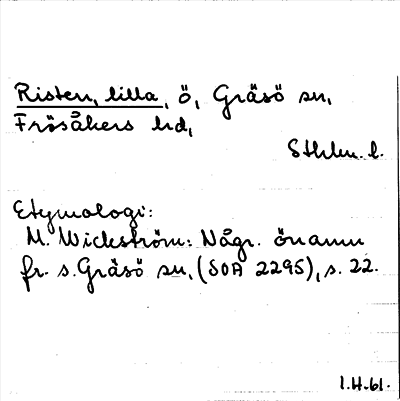 Risten, lilla, ö, Gräsö sn,
Frösåkers hd,
Sthlm. l.
Etymologi:
M. Wickström: Någr. önamn
fr. s. Gräsö sn, (SOA 2295), s. 22.
I.H.61.